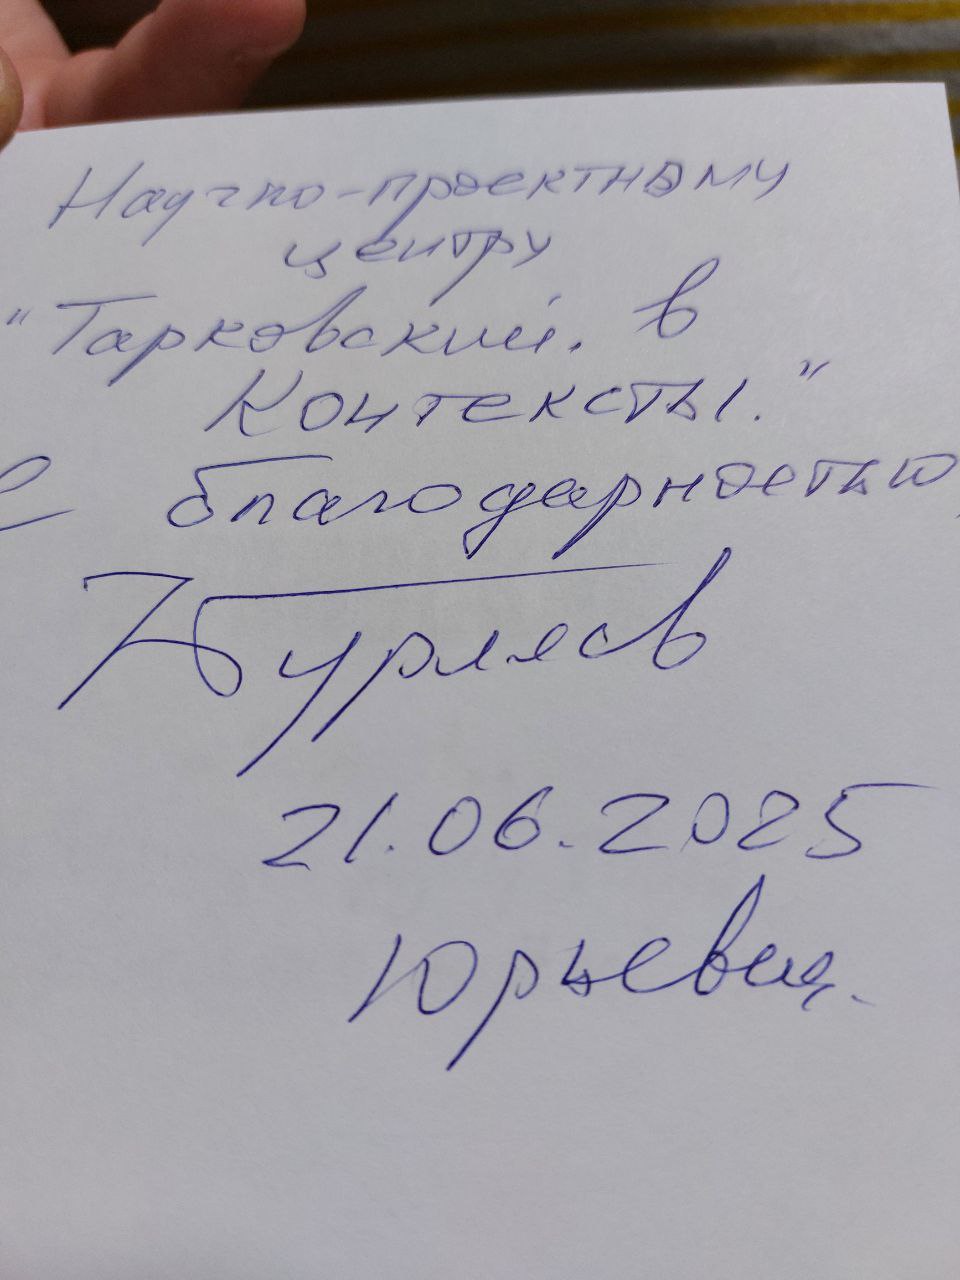 Научно-проектному
центру
"Тарковский. в
Контексты."
С благодарностью,
Н Бурляев
21.06.2025
Юрьевец.